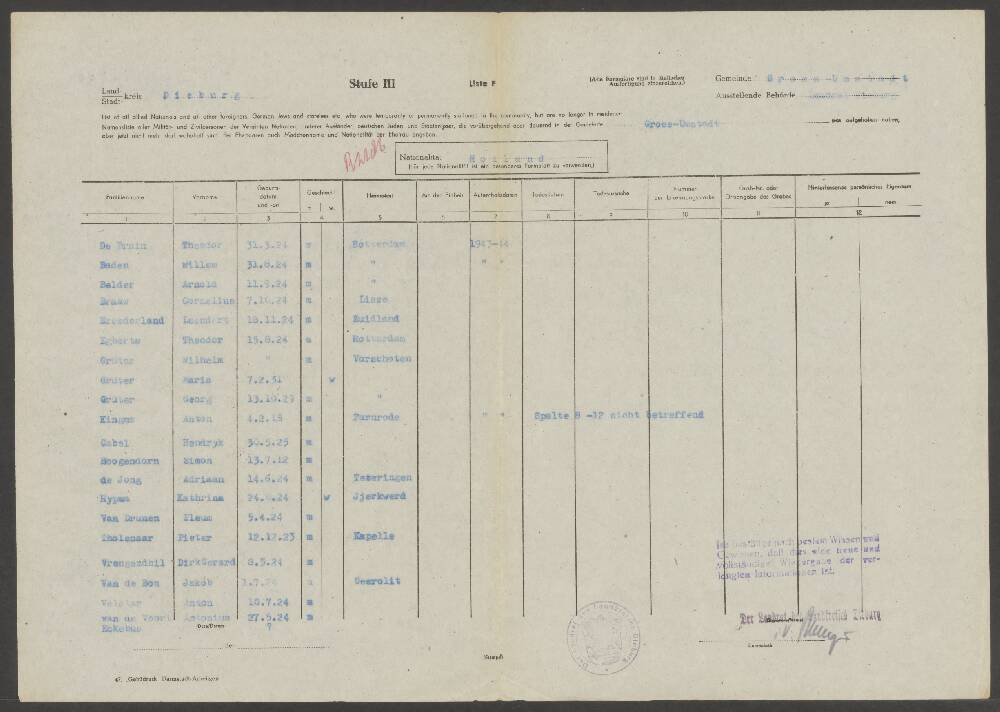 Stufe III
Liste F
(Alle Formulare sind in dreifacher Ausfertigung einzureichen.)
Gemeinde Gross-Umstadt
Land- Stadt- kreis Dieburg
Ausstellende Behörde
List of all allied Nationals and all other foreigners, German Jews and stateless etc. who were temporarily or permanently stationed in the community, but are no longer in residence.
Namensliste aller Militär- und Zivilpersonen der Vereinten Nationen, anderer Ausländer, deutschen Juden und Staatenloser, die vorübergehend oder dauernd in der Gemeinde Gross-Umstadt sich aufgehalten haben,
aber jetzt nicht mehr dort wohnhaft sind. Bei Ehefrauen auch Mädchenname und Nationalität bei Eheschl. angeben.
Nationalität: Holland
(Für jede Nationalität ist ein besonderes Formular zu verwenden.)
Familienname Vorname Geburts-datum und -ort Geschlecht Heimatort Art der Einheit Aufenthaltsdaten Todesdatum Todesursache Nummer der Erkennungsmarke Grab-Nr. oder Ortsangabe des Grabes Hinterlassenes persönliches Eigentum
m w ja nein
1 2 3 4 5 6 7 8 9 10 11 12
De Bruin Theodor 31.3.24 m Rotterdam 1943-44
Baden Willem 31.8.24 m " " "
Balder Arnold 11.9.24 m "
Braaw Cornelius 7.10.24 m Lisse
Breederland Leendert 18.11.24 m Zuidland
Egberts Theodor 15.8.24 m Rotterdam
Gruter Wilhelm " m Vorschoten
Gruter Maria 7.2.31 w
Gruter Georg 13.10.29 m "
Kingus Anton 4.2.18 m Purnrode " " Spalte 8 -12 nicht betreffend
Gabel Hendryk 30.5.25 m
Hoogendorn Simon 13.7.12 m
de Jong Adriaan 14.6.24 m Teteringen
Hypma Kathrina w Jjerkwerd
Van Drunen Kleum 5.4.24 m
Tholenaar Pieter 12.12.23 m Kapelle
Vrengerdhil DirkGerard 8.5.24 m
Van de Bon Jakob 1.7.24 m Geerolit
Velstar Anton 10.7.24 m
van de Voort Antonius 27.5.24 m
Hokebus ?
Ich bestätige nach bestem Wissen und
Gewissen, daß dies eine treue und
vollständige Wiedergabe der ver-
langten Informationen ist.
Der Landrat des Landkreises Dieburg
Ort/Datum
Stempel